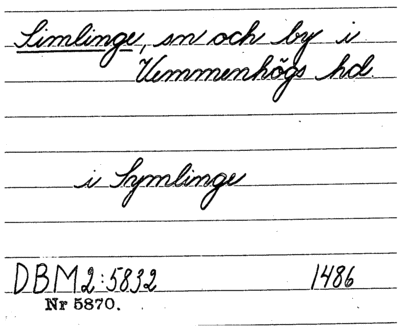 Simlinge, sn och by i
Vemmenhögs hd
i Symlinge
DBM2:5832 1486
Nr 5870.